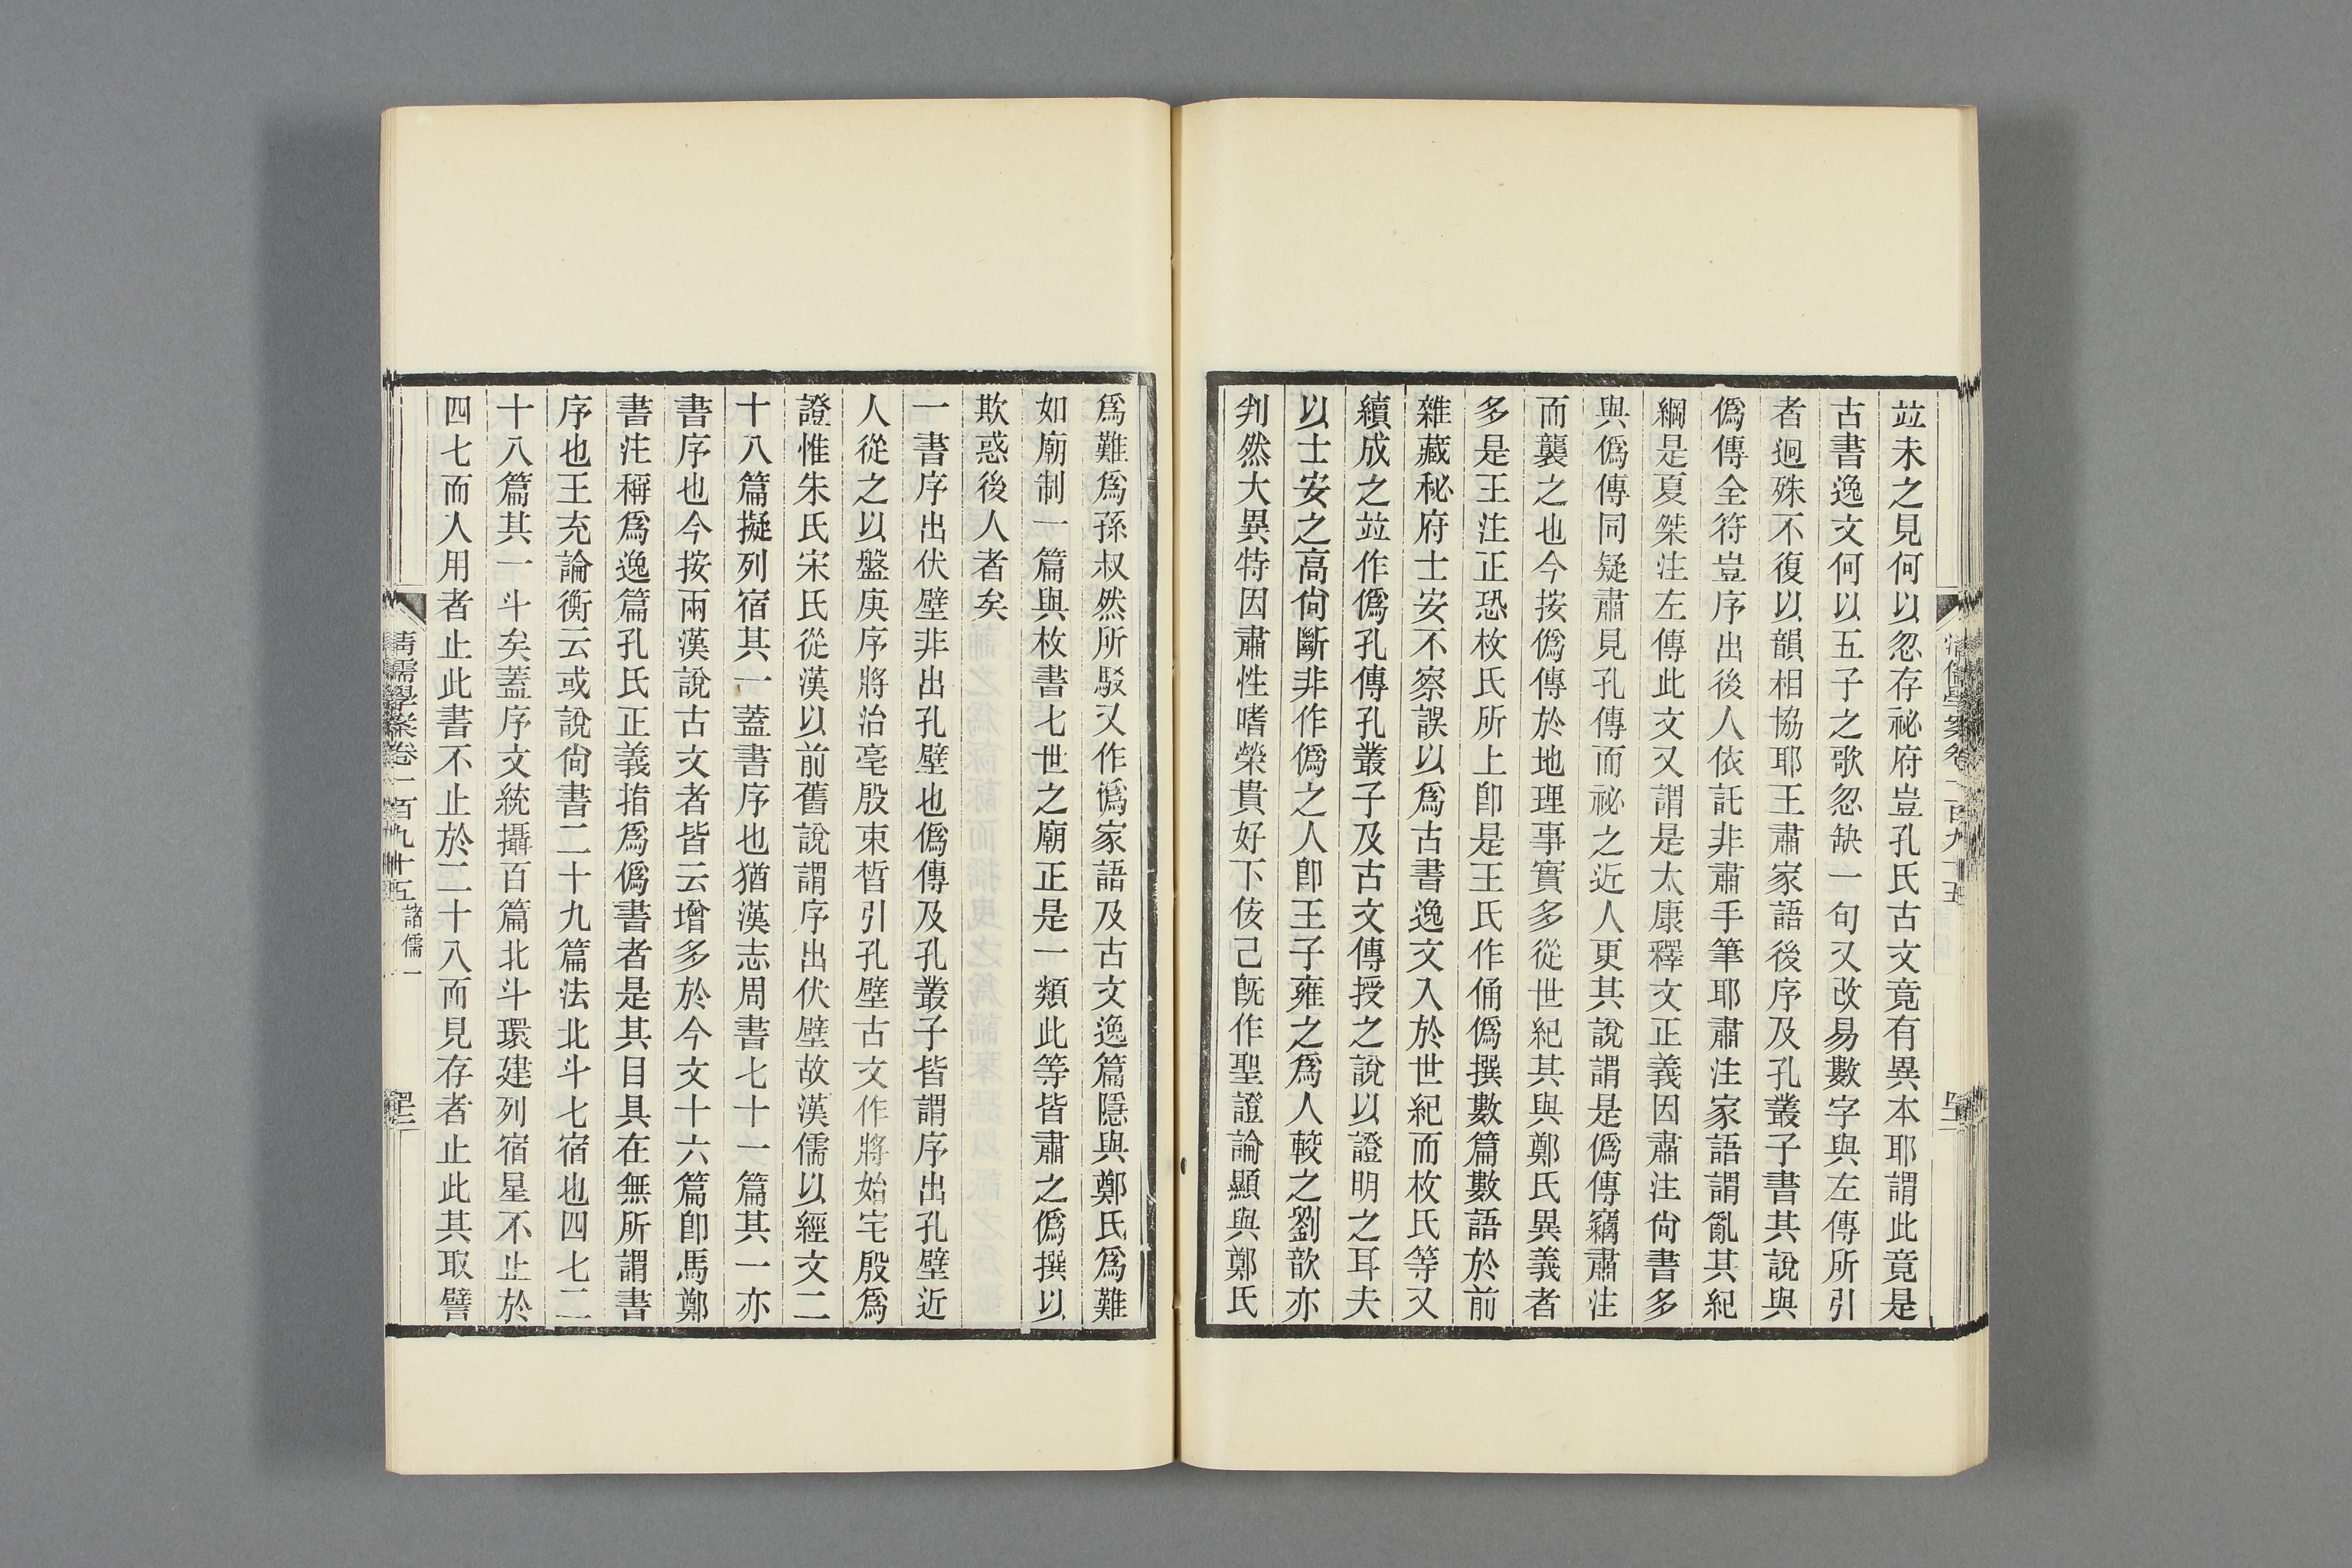 竝未之見何以忽存祕府豈孔氏古文竟有異本耶謂此竟是
古書逸文何以五子之歌忽缺一句又改易數字與左傳所引
者迥殊不復以韻相協耶王肅家語後序及孔叢子書其說與
僞傳全符豈序出後人依託非肅手筆耶肅注家語謂亂其紀
綱是夏桀注左傳此文又謂是太康釋文正義因肅注尙書多
與僞傳同疑肅見孔傳而祕之近人更其說謂是僞傳竊肅注
而襲之也今按僞傳於地理事實多從世紀其與鄭氏異義者
多是王注正恐枚氏所上卽是王氏作俑僞撰數篇數語於前
雜藏秘府士安不察誤以爲古書逸文入於世紀而枚氏等又
續成之竝作僞孔傳孔叢子及古文傳授之說以證明之耳夫
以士安之高尙斷非作僞之人卽王子雍之爲人較之劉歆亦
判然大異特因肅性嗜榮貴好下佞己旣作聖證論顯與鄭氏
爲難爲孫叔然所駁又作僞家語及古文逸篇隱與鄭氏爲難
如廟制一篇與枚書七世之廟正是一類此等皆肅之僞撰以
欺惑後人者矣
一書序出伏壁非出孔壁也僞傳及孔叢子皆謂序出孔壁近
人從之以盤庚序將治亳殷束晳引孔壁古文作將始宅殷爲
證惟朱氏宋氏從漢以前舊說謂序出伏壁故漢儒以經文二
十八篇擬列宿其一蓋書序也猶漢志周書七十一篇其一亦
書序也今按兩漢說古文者皆云增多於今文十六篇卽馬鄭
書注稱爲逸篇孔氏正義指爲僞書者是其目具在無所謂書
序也王充論衡云或說尙書二十九篇法北斗七宿也四七二
十八篇其一斗矣蓋序文統攝百篇北斗環建列宿星不止於
四七而人用者止此書不止於二十八而見存者止此其取譬
清儒學案卷一百九十五 諸儒一